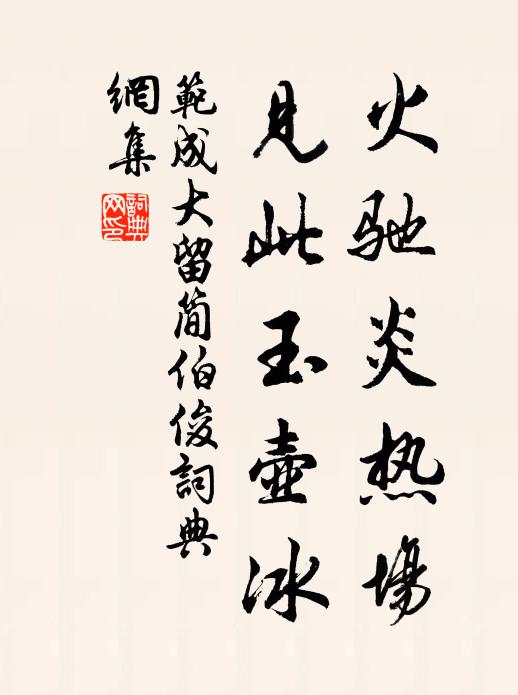 火驰炎热場
見此玉壷冰
範成大留简伯俊詞典
網集
詞典
网印